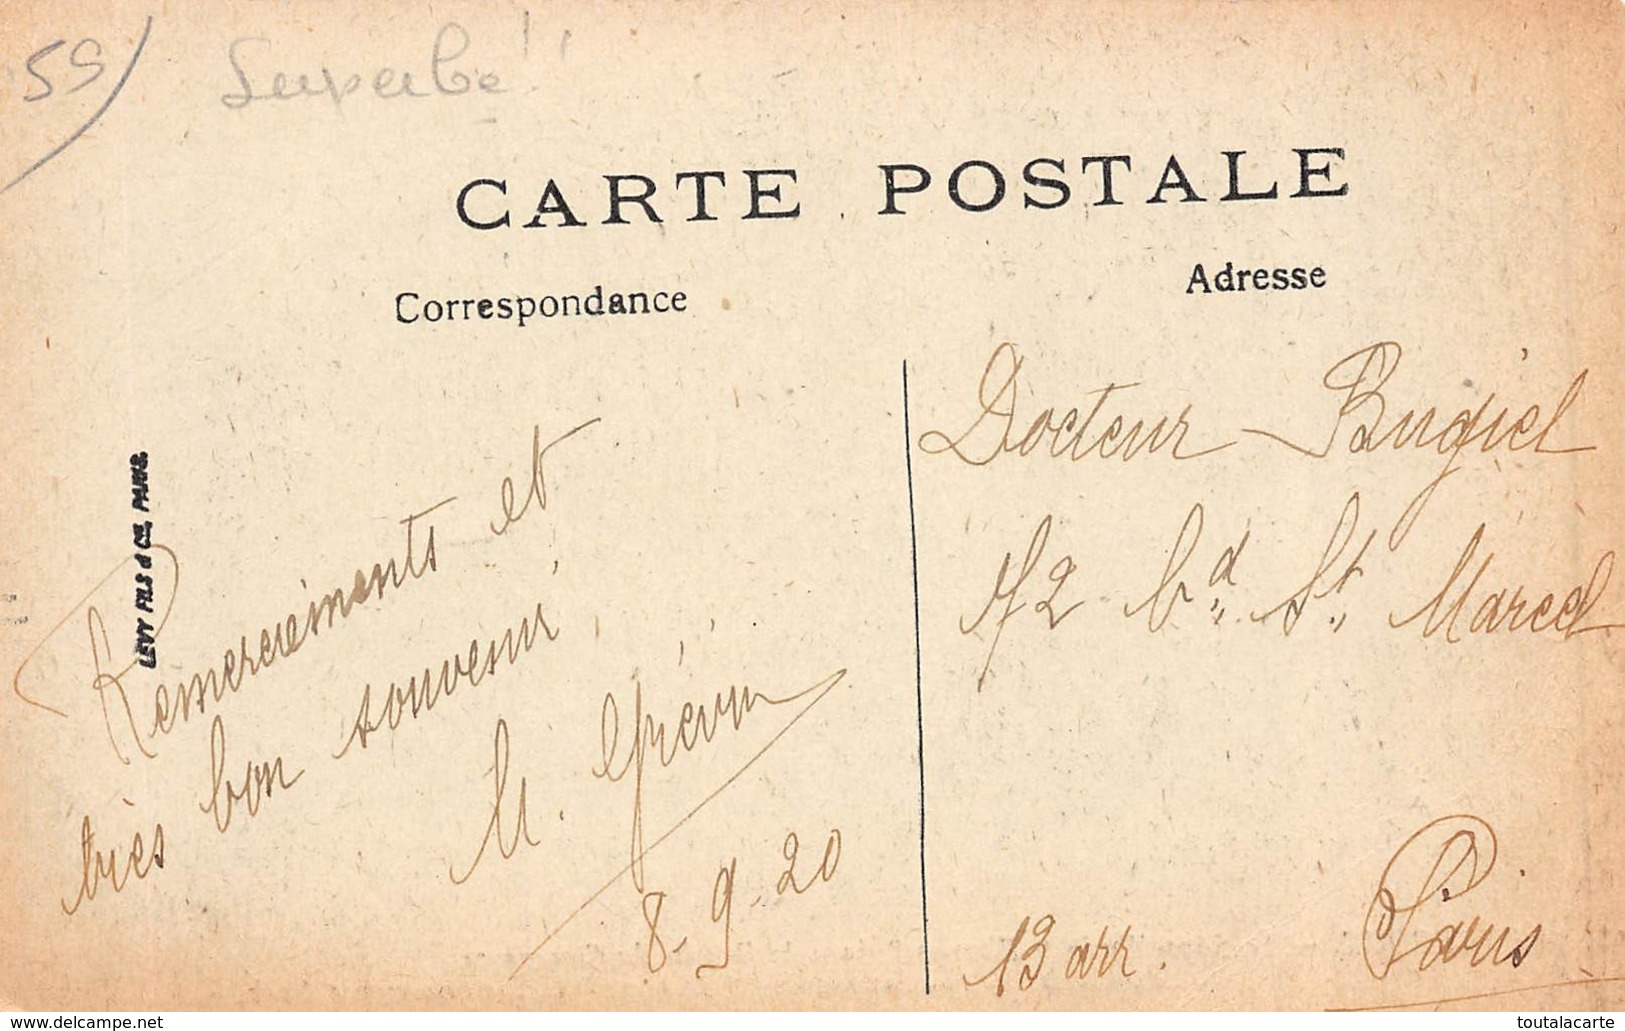 59
Superbe!!
CARTE POSTALE
Correspondance
Adresse
LEVY FILS & CIE, PARIS.
Remerciements et
très bon souvenir,
8-9-20
Docteur Bugiel
72 bd. St. Marcel
13 arr.
Paris
delcampe.net
toutalacarte